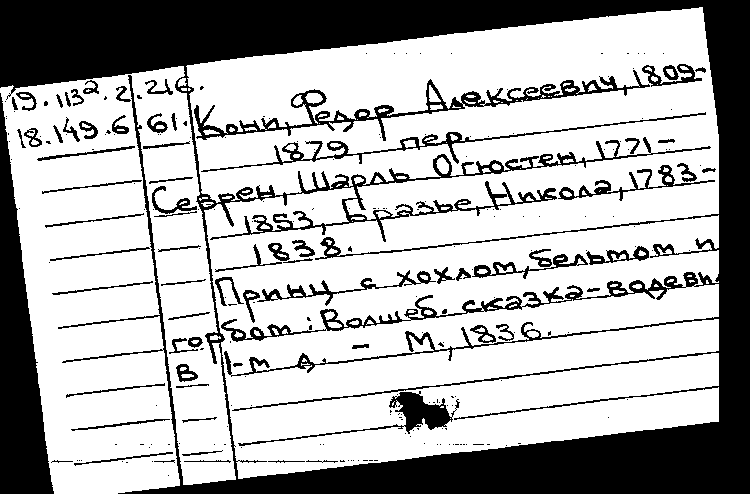 19.113².2.216.
18.149.6.61.
Кони, Федор Алексеевич, 1809-
1879, пер.
Севрен, Шарль Огюстен, 1771-
1853, Бразье, Никола, 1783-
1838.
Принц с хохлом, бельмом и
горбом: Волшеб. сказка-водевиль
в 1-м д. - М., 1836.